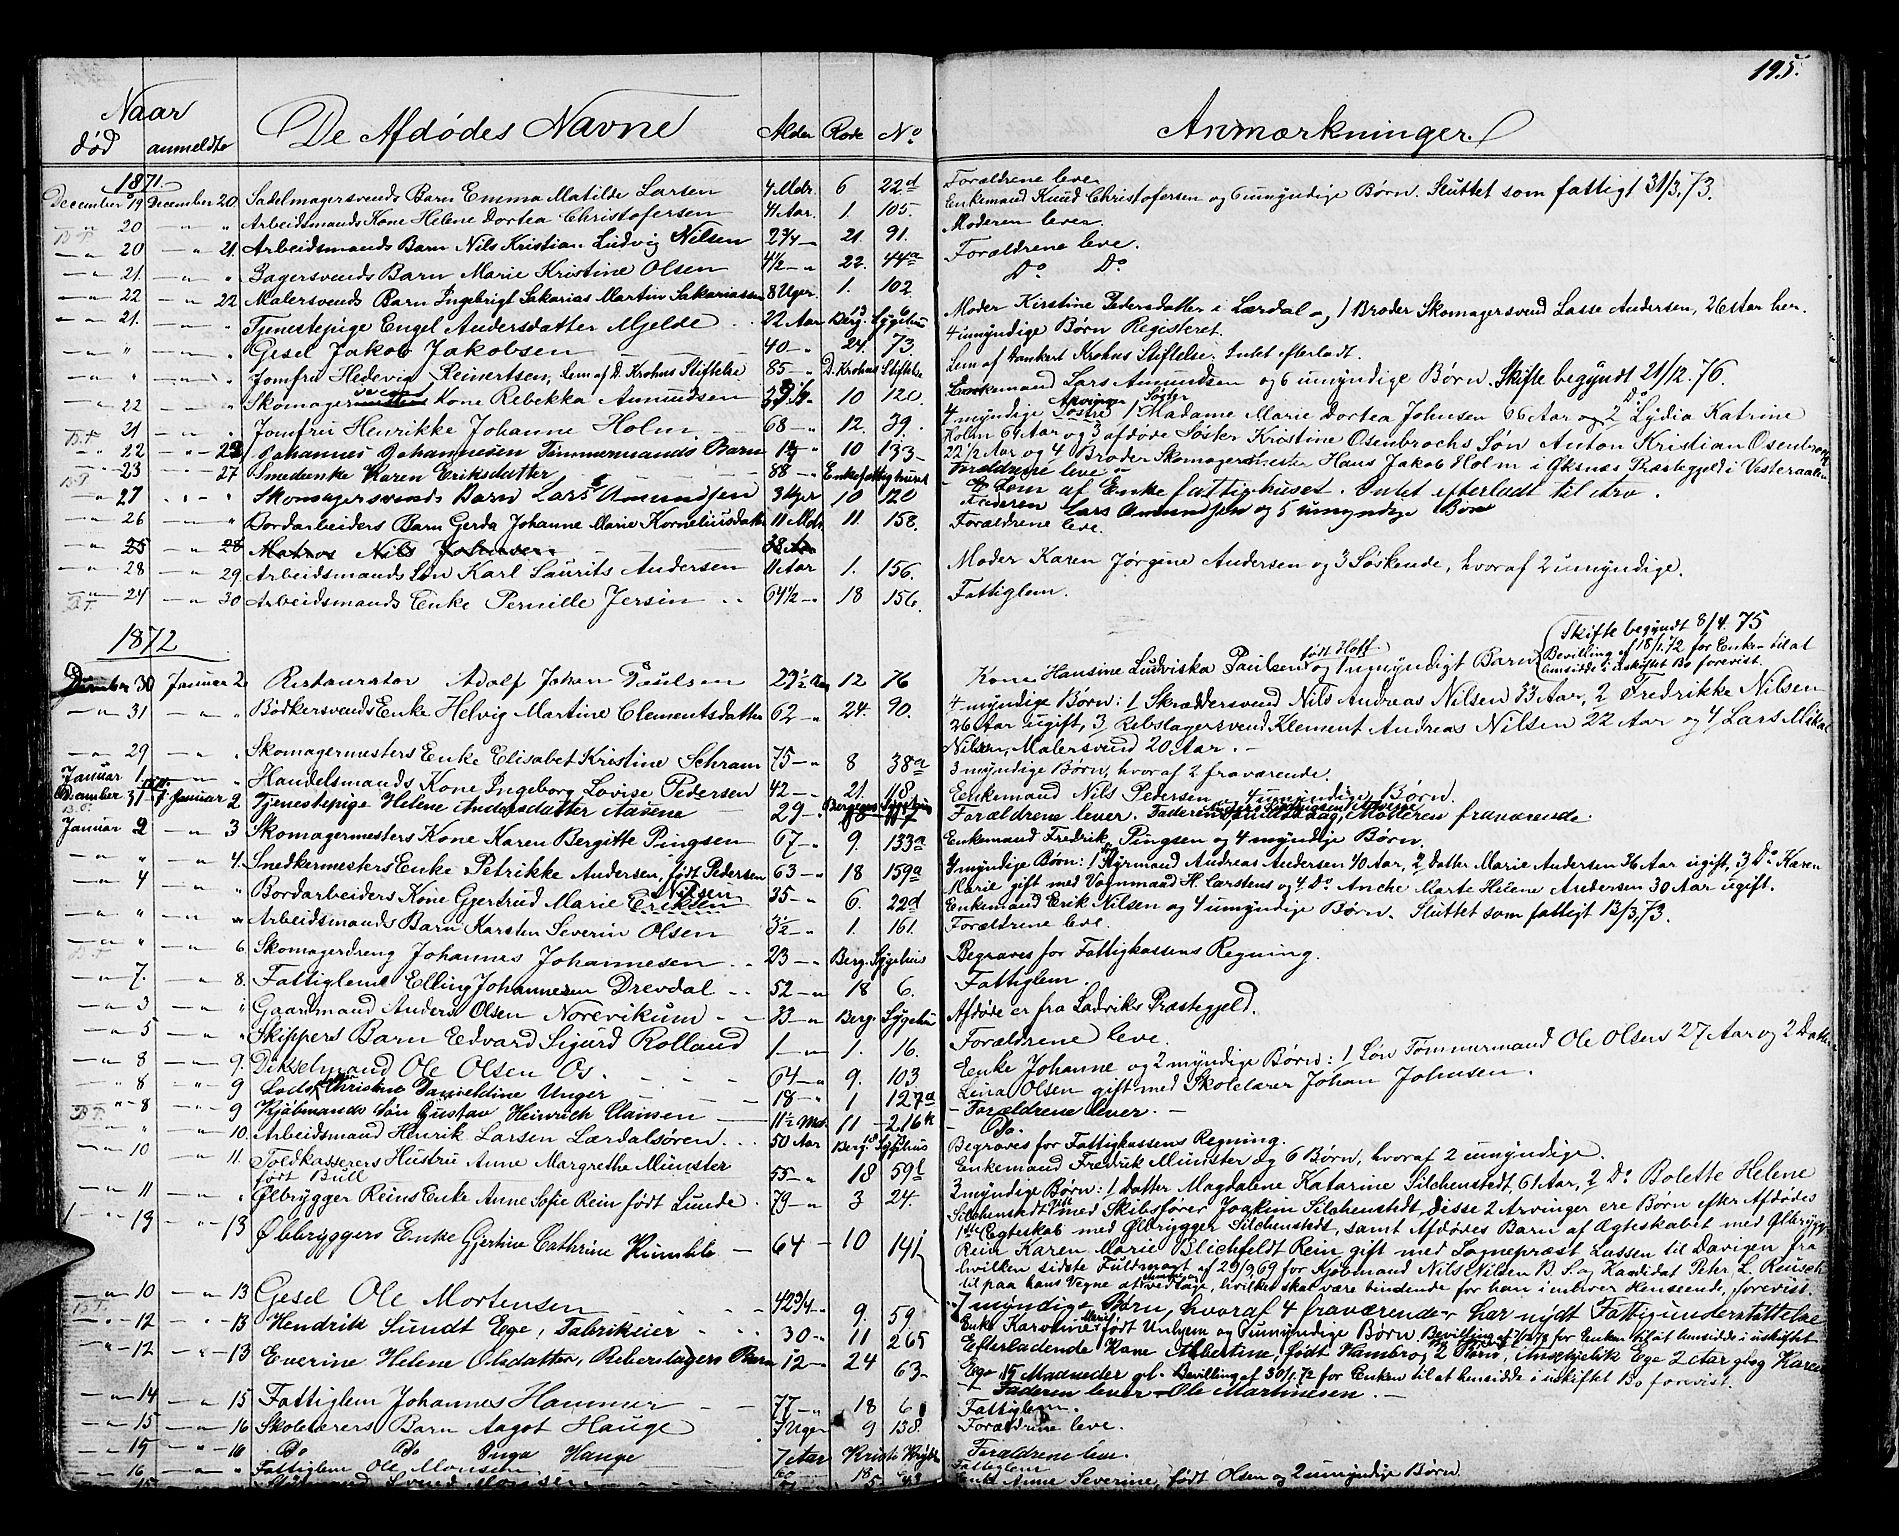 195.
Naar
død anmeldte De Afdødes Navne Alder Rode No Anmærkninger.
1871.
December 19 December 20 Sadelmagersvends Barn Emma Matilde Larsen 4 Mdr. 6 22d Forældrene leve
20 Arbeidsmands Kone Helene Dortea Christofersen 41 Aar. 1. 105. Enkemand Knud Christofersen og 6 umyndige Børn. Sluttet som fattigt 31/3.73.
20 21. Arbeidsmands Barn Nils Kristian Ludvig Nilsen 2 3/4 21. 91. Moderen lever
21. Bagersvends Barn Marie Kristine Olsen 4 1/2 22. 44a Forældrene leve.
22 22 Malersvends Barn Ingebrigt Sakarias Martin Sakariassen 8 Uger. 1. 102. Do Do
21. Tjenestepige Engel Andersdatter Mjelde 22 Aar Berg. Sygehus Moder Kirstine Pedersdatter i Lærdal og 1 Broder Skomagersvend Lasse Andersen, 26 Aar her.
Gesel Jakob Jakobsen 40 24. 73. 4 umyndige Børn Registeret.
Jomfru Hedevig Reinertsen, Lem af D. Krohns Stiftelse 85 D. Krohns Stiftelse Lem af Dankert Krohns Stiftelse. Intet efterladt.
22 Skomagersvends Kone Rebekka Amundsen 10 120. Enkemand Lars Amundsen og 6 umyndige Børn. Skifte begyndt 21/12.76.
21 Jomfru Henrikke Johanne Holm 68 12. 39. 4 myndige Arvinger 1 Søster Madame Marie Dortea Johnsen 66 Aar og 2 Do Lydia Katrine
Holm 64 Aar og 3 afdøde Søster Kristine Osenbrochs Søn Anton Kristian Osenbroch
22 Johannes Johannesen Tømmermands Barn 10 133 22 1/2 Aar og 4 Broder Skomagermester Hans Jakob Holm i Øksnæs Præstegjeld i Vesteraalen
23 27 Smedenke Karen Eriksdatter 88 Enkefattighuset Forældrene leve
27 Skomagersvends Barn Lars Amundsen 3 Uger 10 120 Lem af Enkefattighuset. Intet efterladt til Arv.
Faderen Lars Amundsen og 5 umyndige Børn
26 Bordarbeiders Barn Gerda Johanne Marie Korneliusdatter 11 Mdr. 11. 158. Forældrene leve.
25 28 Matros Nils Johnsen 38 Aar
28 29 Arbeidsmands Søn Karl Laurits Andersen 11 Aar 1. 156. Moder Karen Jørgine Andersen og 3 Søskende, hvoraf 2 umyndige.
24 30 Arbeidsmands Enke Pernille Jersin 64 1/2 18 156. Fattiglem.
1872
Skifte begyndt 8/4.75
December 30 Januar 2 Restauratør Adolf Johan Paulsen 29 1/2 Aar 12 76 Kone Hansine Ludviska Paulsen født Hoff og 1 umyndigt Barn Bevilling af 18/1.72 for Enken til at
hensidde i uskiftet Bo forevist.
31 Bødkersvends Enke Helvig Martine Clementsdatter 62 24. 90. 4 myndige Børn: 1 Skræddersvend Nils Andreas Nilsen 33 Aar, 2 Fredrikke Nilsen
26 Aar ugift, 3 Rebslagersvend Klement Andreas Nilsen 22 Aar og 4 Lars Mikal
Nilsen, Malersvend 20 Aar.
29 Skomagermesters Enke Elisabet Kristine Schram 75 8 38a 3 myndige Børn, hvoraf 2 fraværende.
Januar 1. Handelsmands Kone Ingeborg Lovise Pedersen 42 21. 118. Enkemand Nils Pedersen 4 umyndige Børn.
December 31 Januar 2 Tjenestepige Helene Andersdatter Aasene 29 Bergens Sygehus Forældrene lever. Faderen Moderen fraværende.
Januar 2 3 Skomagermesters Kone Karen Bergitte Pingsen 67 9. 133a Enkemand Fredrik Pingsen og 4 myndige Børn.
4. Snedkermesters Enke Petrikke Andersen, født Pedersen 63 18 159a 4 myndige Børn: 1 Styrmand Andreas Andersen 40 Aar, 2 Datter Marie Andersen 36 Aar ugift, 3 Do Karen
Marie gift med Vognmand H. Carstens og 4 Do Anche Marte Helene Andersen 30 Aar ugift.
4 Bordarbeiders Kone Gjertrud Marie Eriksen Nilsen 35 6. 22d Enkemand Erik Nilsen og 4 umyndige Børn. Sluttet som fattigt 13/3.73.
Arbeidsmands Barn Karsten Severin Olsen 3 1/2 1. 161. Forældrene leve.
6 Skomagerdreng Johannes Johannesen 23 Berg. Sygehus Begraves for Fattigkassens Regning.
7. 8. Fattiglem Elling Johannesen Drevdal 52 18 6. Fattiglem.
3 Gaardmand Anders Olsen Norevikum 33 Berg. Sygehus Afdøde er fra Ladviks Præstegjeld.
5 Skippers Barn Edvard Sigurd Rolland 1 1. 16. Forældrene leve.
8 9. Dikselmand Ole Olsen Os. 64 9. 103 Enke Johanne og 2 myndige Børn: 1 Søn Tømmermand Ole Olsen 27 Aar og 2 Datter
Lina Olsen gift med Skolelærer Johan Johnsen.
8 9 Christine Danieldine Unger 18 1 127a Forældrene lever.
8 9 Kjøbmands Søn Gustav Heinrich Clausen 11 1/2 Md. 11 216k Do.
10. Arbeidsmand Henrik Larsen Lærdalsøren 50 Aar Berg. Sygehus Begraves for Fattigkassens Regning.
10 11. Toldkasserers Hustru Anne Margrethe Münster født Bull 55 18 59b Enkemand Fredrik Münster og 6 Børn, hvoraf 2 umyndige.
11 Ølbrygger Reins Enke Anne Sofie Rein født Lunde 79 3 24. 3 myndige Børn: 1 Datter Magdalene Katarine Silchenstedt, 61 Aar, 2 Do Bolette Helene
Silchenstedt gift med Skibsfører Joakim Silchenstedt, disse 2 Arvinger ere Børn efter Afdødes
13 13 Ølbryggers Enke Gjertine Cathrine Rumble 64 10 141 1ste Ægteskab med Ølbrygger Silchenstedt, samt Afdødes Barn af Ægteskabet med Ølbrygger
Rein Karen Marie Blichfeldt Rein gift med Sognepræst Lassen til Davigen fra
hvilken sidste Fuldmagt af 29/9.69 for Kjøbmand Nils Nilsen B. S. og Kandidat Peter L. Reusch
til paa hans Vegne at vedtage, hvilket skal være bindende for ham i enhver Henseende, forevist.
10 13 Gesel Ole Mortensen 42 3/4 9. 59 7 myndige Børn, hvoraf 4 fraværende har nydt Fattigunderstøttelse
12 13 Hendrik Sundt Ege, Fabrikeier 30 11 265 Enke Karoline Marie født Unhjem og umyndige Børn Bevilling for Enken til at hensidde i uskiftet
Efterladende Kone Albertine, født Hambro, 2 Børn, Angelik Ege 2 Aar gl. og Karen
12 13 Everine Helene Olsdatter, Reberslagers Barn 12 24 63 Ege 15 Maaneder gl. Bevilling af 30/1.72 for Enken til at hensidde i uskiftet Bo forevist.
Faderen lever Ole Martinesen.
14 15 Fattiglem Johannes Hammer 77 18 6 Fattiglem.
15 16 Skolelærers Barn Aagot Hauge 7 Uger 9 138. Forældrene leve.
15 16 Do Do Inga Hauge 7 Aar Forældrene leve.
16 Fattiglem Ole Monsen 18 Fattiglem
Enke Anne Severine, født Olsen og 2 umyndige Børn.